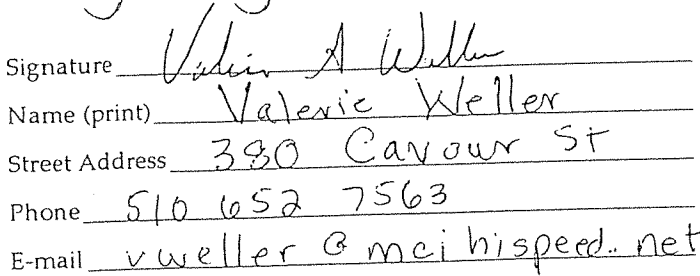 Signature Valerie A Weller
Name (print) Valerie Weller
Street Address 380 Cavour St
Phone 510 652 7563
E-mail vweller @ mci hispeed.. net